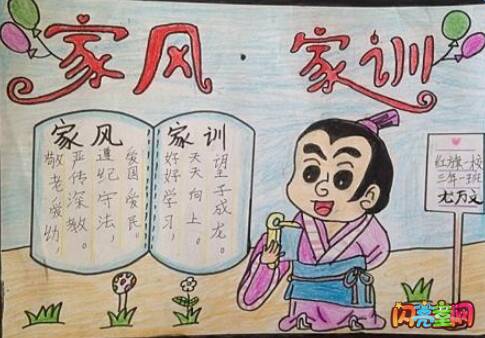 家风·家训
家风
敬老爱幼，
严传深教。
遵纪守法，
爱国爱民。
家训
好好学习，
天天向上。
望子成龙。
红旗一校
三年一班
闪亮童网